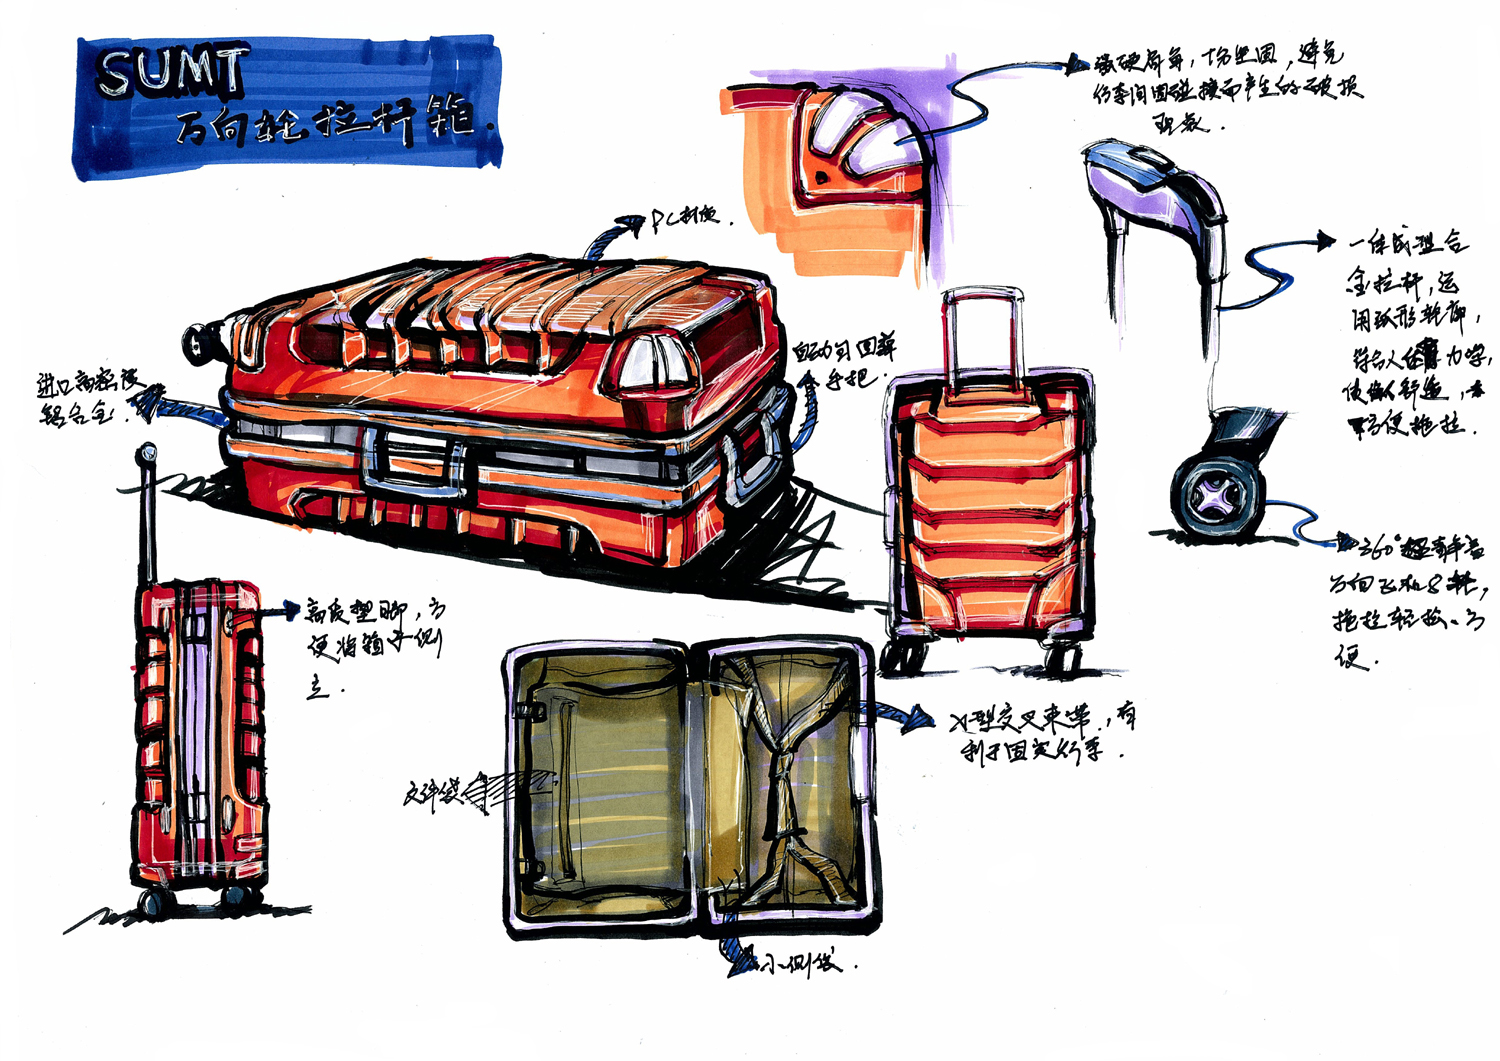 SUMT
万向轮拉杆箱.
硬厚角,十分坚固,避免
行李间因碰撞而产生的破损
现象.
PC材质.
一体成型合
金拉杆,运
用弧形轮廓,
符合人体力学,
使舒适,
方便拖拉.
自动回弹
手把.
进口高密度
铝合金.
360°超静音
万向飞机轮,
拖拉轻松、方
便.
高度塑脚,方
便将箱子侧
立.
X型交叉束带,有
利于固定行李.
文件袋
小侧袋.